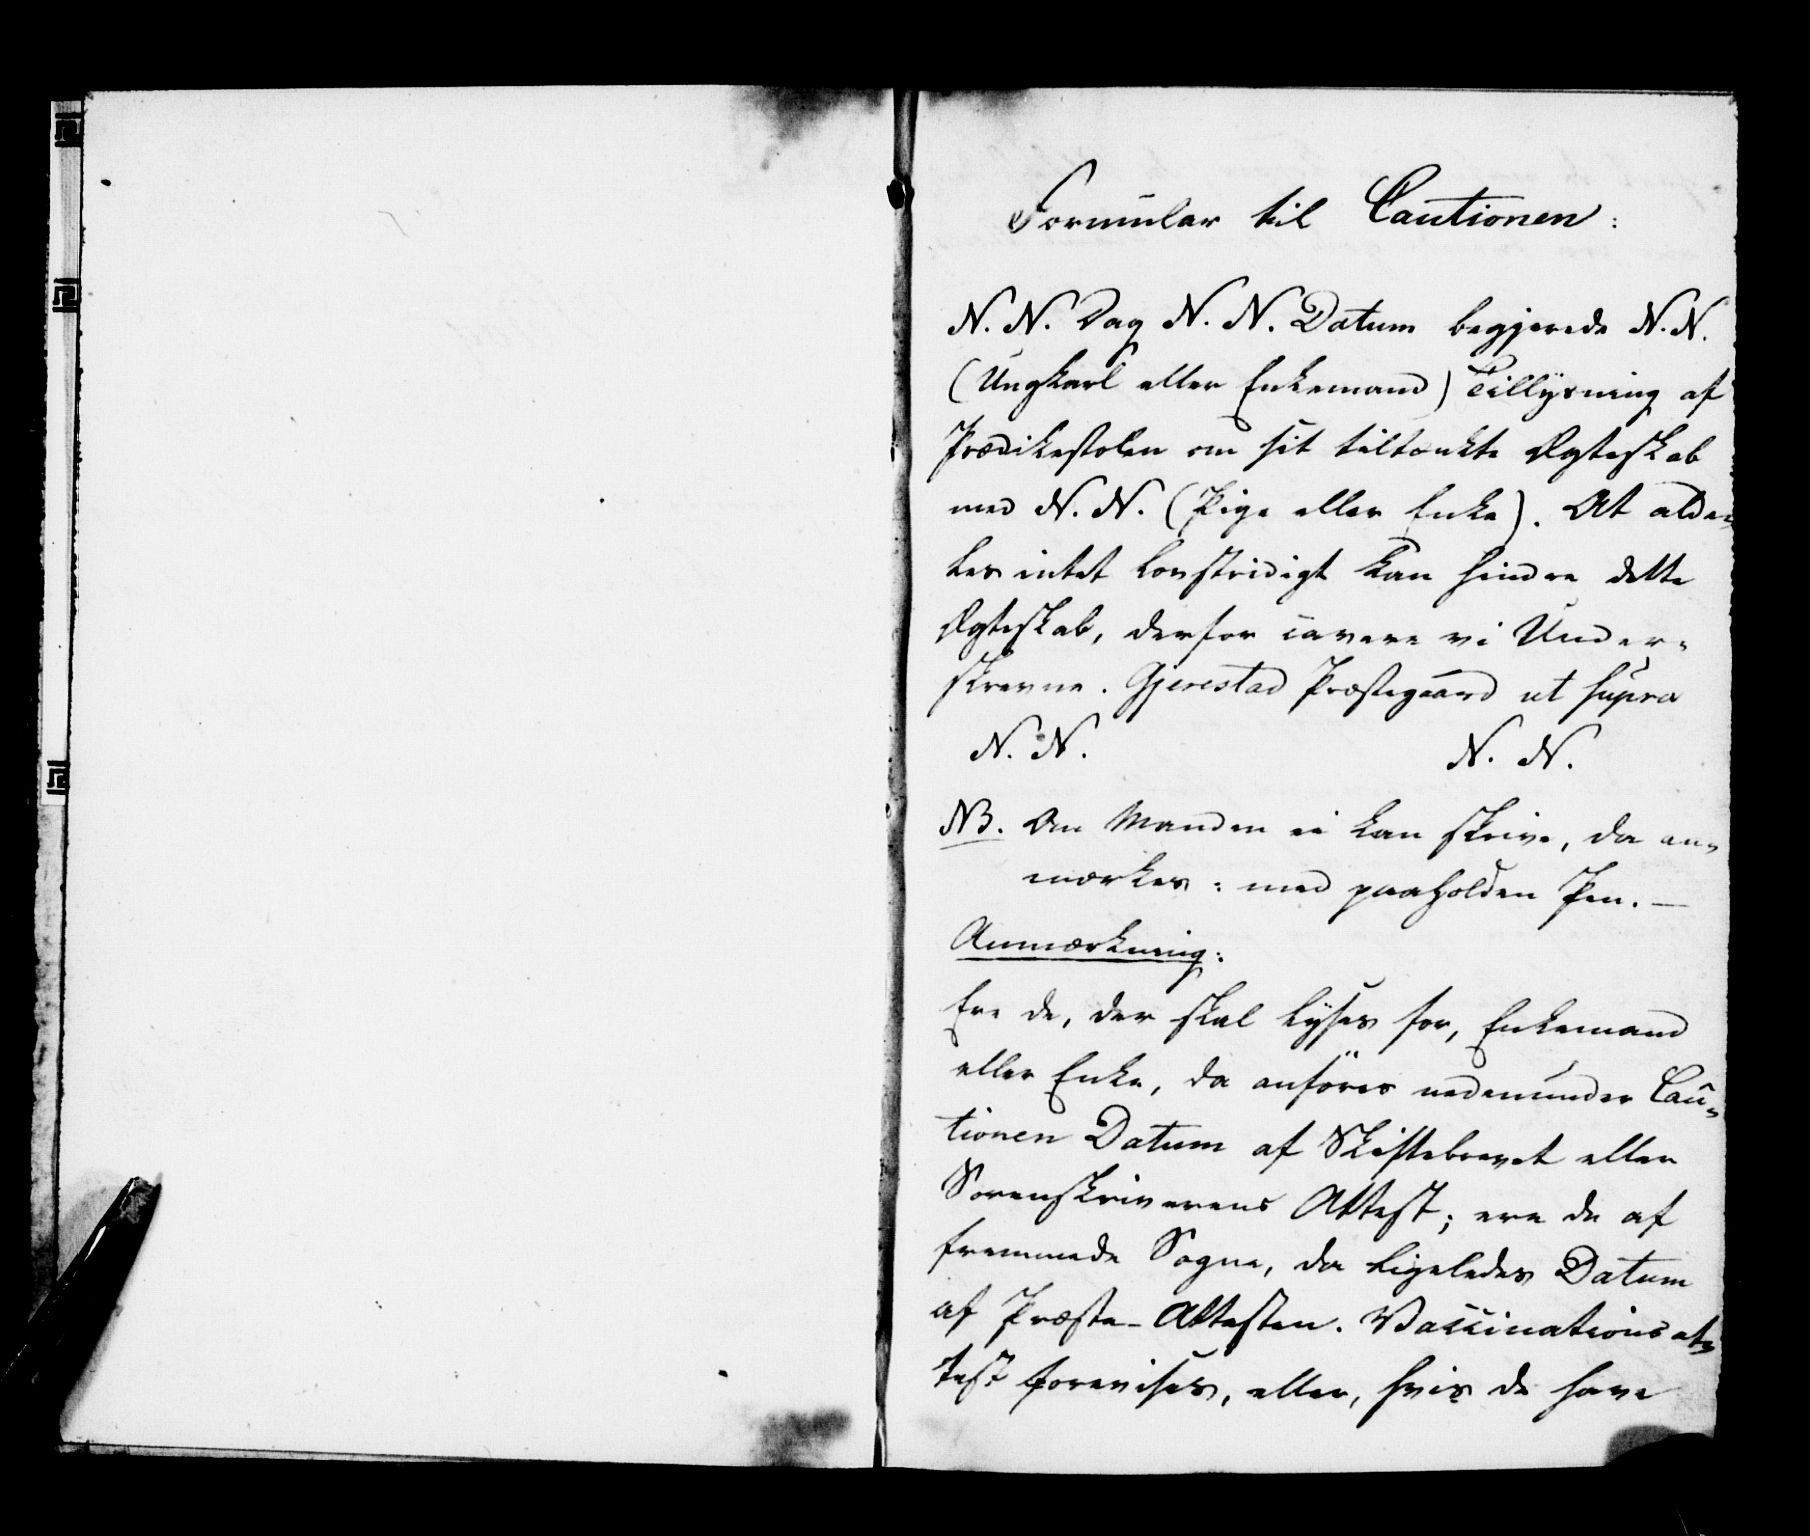 Formular til Cautionen:
N. N. Dag N. N. Datum begjerede N. N.
(Ungkarl eller Enkemand) Tillysning af
Prædikestolen om sit tiltænkte Ægteskab
med N. N. (Pige eller Enke). At alde-
les intet lovstridigt kan hindre dette
Ægteskab, derfor cavere vi Under-
skrevne. Gjerestad Præstegaard ut supra
N. N. N. N.
NB. Om Manden ei kan skrive, da an-
mærkes: med paaholden Pen. —
Anmærkning:
Ere de, der skal lyses for, Enkemand
eller Enke, da anföres nedenunder Cau-
tionen Datum af Skiftebrevet eller
Sorenskriverens Attest; ere de af
fremmede Sogne, da ligeledes Datum
af Præste-Attesten. Vaccinationsat-
test forevises, eller, hvis de have